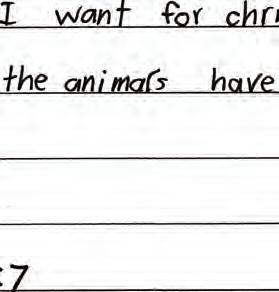 I want for chr
the animals have
:7